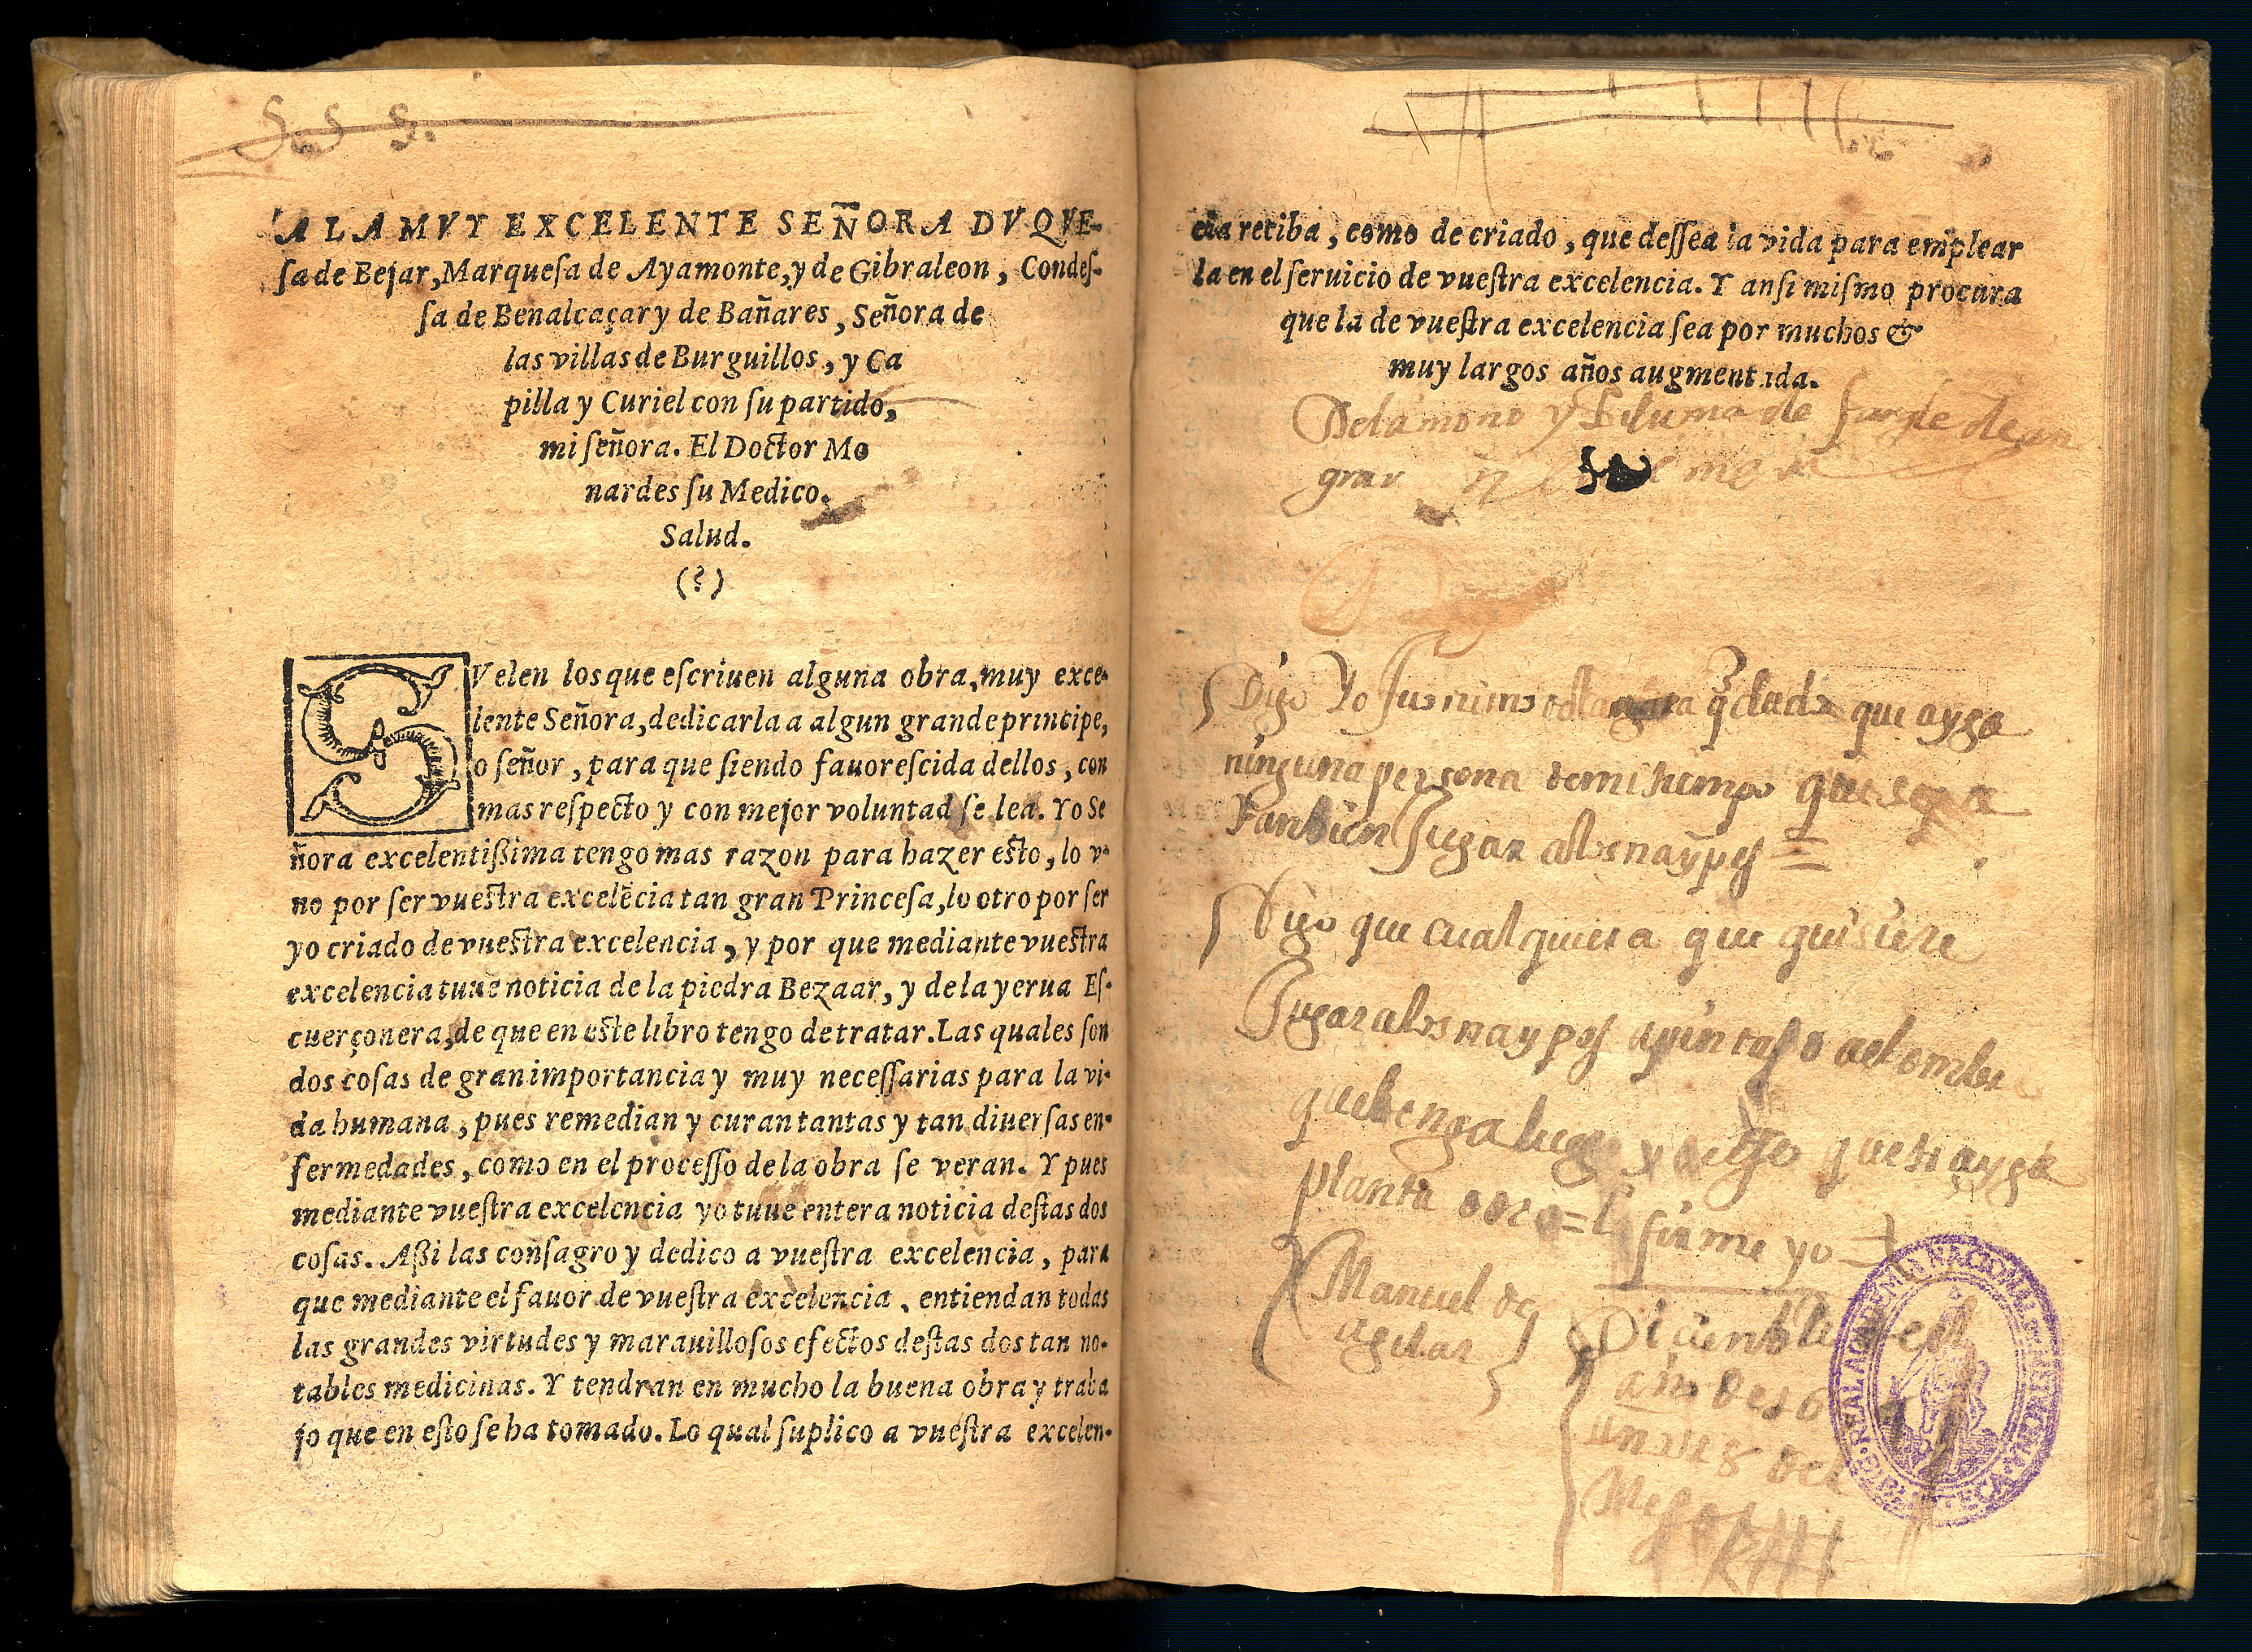 S. S S.
A LA MVY EXCELENTE SEÑORA DVQVE-
ſa de Bejar, Marqueſa de Ayamonte, y de Gibraleon, Condeſ-
ſa de Benalcaçar y de Bañares, Señora de
las villas de Burguillos, y Ca
pilla y Curiel con ſu partido,
mi ſeñora. El Doctor Mo
nardes ſu Medico.
Salud.
(?)
SVelen los que eſcriuen alguna obra, muy exce-
lente Señora, dedicarla a algun grande principe,
o ſeñor, para que ſiendo fauoreſcida dellos, con
mas reſpecto y con mejor voluntad ſe lea. Yo Se
ñora excelentiſsima tengo mas razon para hazer esto, lo v-
no por ſer vuestra excelẽcia tan gran Princeſa, lo otro por ſer
yo criado de vuestra excelencia, y por que mediante vuestra
excelencia tuue noticia de la piedra Bezaar, y de la yerua Eſ-
cuerçonera, de que en este libro tengo de tratar. Las quales ſon
dos coſas de gran importancia y muy neceſſarias para la vi-
da humana, pues remedian y curan tantas y tan diuerſas en-
fermedades, como en el proceſſo de la obra ſe veran. Y pues
mediante vueſtra excelencia yo tuue entera noticia deſtas dos
coſas. Aſsi las conſagro y dedico a vueſtra excelencia, para
que mediante el fauor de vueſtra excelencia, entiendan todas
las grandes virtudes y marauilloſos efectos deſtas dos tan no-
tables medicinas. Y tendran en mucho la buena obra y traba
jo que en eſto ſe ha tomado. Lo qual ſuplico a vueſtra excelen-
cia reciba, como de criado, que deſſea la vida para emplear
la en el ſeruicio de vueſtra excelencia. Y anſi miſmo procura
que la de vueſtra excelencia ſea por muchos &
muy largos años augmentada.
Digo Yo que ayga
ninguna persona demi tiempo que sepa
tanbien Jugar alos naypes =
Digo que cualquiera que quisiere
Jugar alos naypes
que benga luego y digo que trayga
planta firme yo
Manuel de
agilar
Diciembre
BIBLIOTECA · REAL ACADEMIA NACIONAL DE MEDICINA